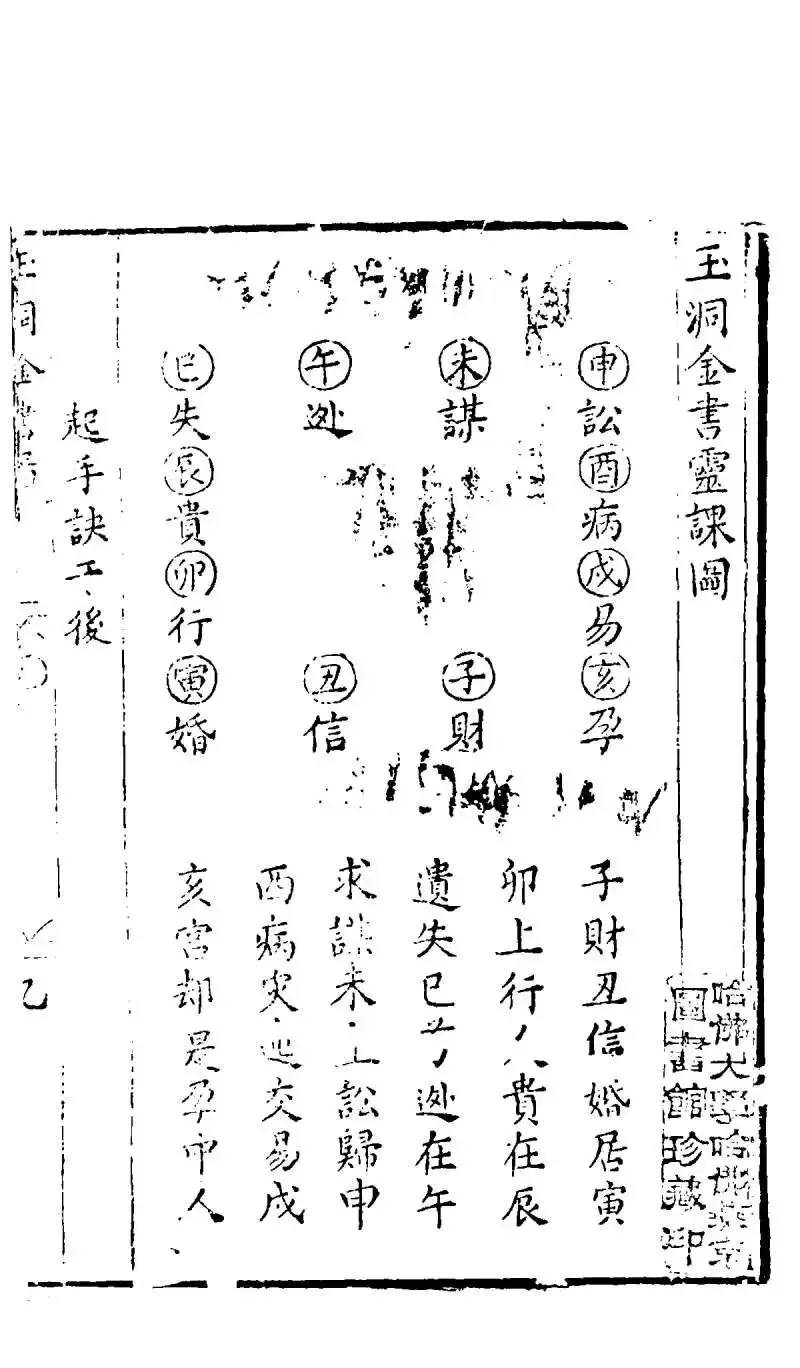 玉洞金書靈課圖
申訟酉病戌易亥孕
未謀
子財
午逃
丑信
巳失辰貴卯行寅婚
子財丑信婚居寅
卯上行人貴在辰
遺失巳 逃在午
求謀未上訟歸申
酉病災 交易戌
亥宮却是孕中人
起手訣 後
玉洞金書
乙
哈佛大學哈佛燕京
圖書館珍藏印